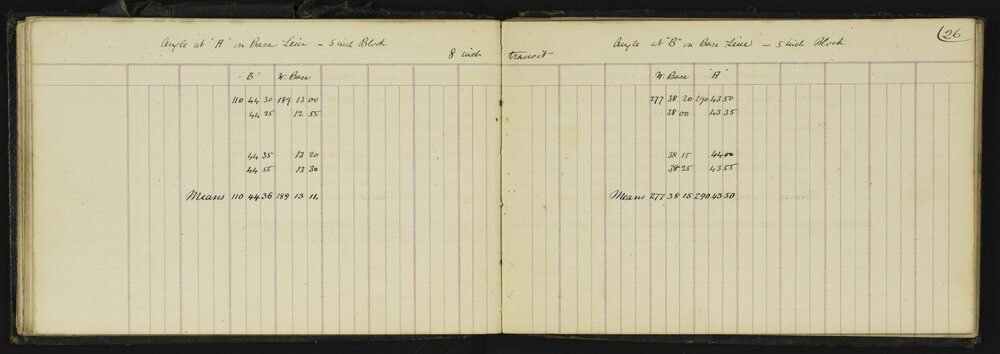 Angle at "A" on Base Line - 5 inch Block
8 inch
"B" W. Base
110 44 30 189 13 00
44 25 12 55
44 35 13 20
44 55 13 30
Means 110 44.36 189 13 11.
(26
Angle at "B" on Base Line - 5 inch Block
transit
W. Base "A"
277 38 20 290 43 50
38 00 43 35
38 15 44 00
38 25 43 55
Means 277 38 15 290 43 50